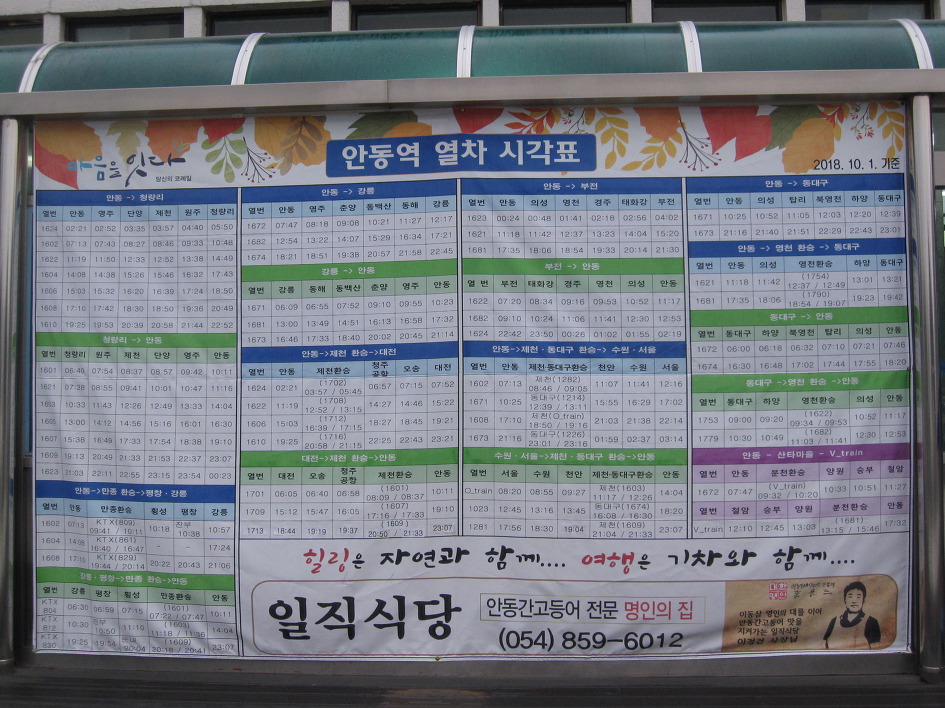 마음을 잇다
당신의 코레일
안동역 열차 시각표
2018. 10. 1. 기준
안동 -> 청량리
열번 안동 영주 단양 제천 원주 청량리
1624 02:21 02:52 03:35 03:57 04:40 05:50
1602 07:13 07:43 08:27 08:46 09:33 10:48
1622 11:19 11:50 12:33 12:52 13:38 14:49
1604 14:08 14:38 15:26 15:46 16:32 17:43
1606 15:03 15:32 16:20 16:39 17:24 18:50
1608 17:10 17:42 18:30 18:50 19:36 20:49
1610 19:25 19:53 20:39 20:58 21:44 22:52
청량리 -> 안동
열번 청량리 원주 제천 단양 영주 안동
1601 06:40 07:54 08:37 08:57 09:42 10:11
1621 07:38 08:55 09:41 10:01 10:47 11:16
1603 10:33 11:43 12:26 12:49 13:33 14:04
1605 13:00 14:12 14:56 15:16 16:01 16:30
1607 15:38 16:49 17:33 17:54 18:38 19:10
1609 19:13 20:26 21:13 21:33 22:37 23:07
1623 21:03 22:11 22:55 23:15 23:54 00:23
안동->만종 환승->평창·강릉
열번 안동 만종환승 횡성 평창 강릉
1602 07:13 KTX(809) 09:41 / 10:11 10:18 진부 10:38 10:57
1604 14:08 KTX(861) 16:40 / 16:47 - - 17:24
1608 17:10 KTX(829) 19:44 / 20:14 20:22 20:43 21:06
강릉·평창->만종 환승->안동
열번 강릉 평창 횡성 만종환승 안동
KTX 804 06:30 06:59 07:15 (1601) 07:22 / 07:47 10:11
KTX 812 10:30 10:50 11:10 (1603) 11:18 / 11:36 14:04
KTX 830 19:25 19:54 20:04 (1609) 20:18 / 20:41 23:07
안동 -> 강릉
열번 안동 영주 춘양 동백산 동해 강릉
1672 07:47 08:18 09:08 10:21 11:27 12:17
1682 12:54 13:22 14:07 15:29 16:34 17:21
1674 18:21 18:51 19:38 20:57 21:58 22:45
강릉 -> 안동
열번 강릉 동해 동백산 춘양 영주 안동
1671 06:09 06:55 07:52 09:10 09:55 10:23
1681 13:00 13:49 14:51 16:13 16:58 17:32
1673 16:46 17:33 18:40 20:02 20:45 21:14
안동->제천 환승->대전
열번 안동 제천환승 청주공항 오송 대전
1624 02:21 (1702) 03:57 / 05:45 06:57 07:15 07:52
1622 11:19 (1708) 12:52 / 13:15 14:27 14:46 15:22
1606 15:03 (1712) 16:39 / 17:15 18:27 18:45 19:21
1610 19:25 (1716) 20:58 / 21:15 22:25 22:43 23:21
대전->제천 환승->안동
열번 대전 오송 청주공항 제천환승 안동
1701 06:05 06:40 06:58 (1601) 08:09 / 08:37 10:11
1709 15:12 15:47 16:05 (1607) 17:16 / 17:33 19:10
1713 18:44 19:19 19:37 (1609) 20:50 / 21:33 23:07
안동 -> 부전
열번 안동 의성 영천 경주 태화강 부전
1623 00:24 00:48 01:41 02:18 02:56 04:02
1621 11:18 11:42 12:37 13:23 14:04 15:20
1681 17:35 18:06 18:54 19:33 20:14 21:30
부전 -> 안동
열번 부전 태화강 경주 영천 의성 안동
1622 07:20 08:34 09:16 09:53 10:52 11:17
1682 09:10 10:24 11:06 11:41 12:30 12:53
1624 22:42 23:50 00:26 01:02 01:55 02:19
안동->제천·동대구 환승-> 수원·서울
열번 안동 제천·동대구환승 천안 수원 서울
1602 07:13 제천(1282) 08:46 / 09:05 11:07 11:41 12:16
1671 10:25 동대구(1214) 12:39 / 13:11 15:55 16:29 17:02
1608 17:10 제천(O_train) 18:50 / 19:16 21:03 21:38 22:14
1673 21:16 동대구(1226) 23:01 / 23:16 01:59 02:37 03:14
수원·서울->제천·동대구 환승->안동
열번 서울 수원 천안 제천·동대구환승 안동
O_train 08:20 08:55 09:27 제천(1603) 11:17 / 12:26 14:04
1023 12:45 13:16 13:45 동대구(1674) 16:08 / 16:30 18:20
1281 17:56 18:30 19:04 제천(1609) 21:04 / 21:33 23:07
안동 -> 동대구
열번 안동 의성 탑리 북영천 하양 동대구
1671 10:25 10:52 11:05 12:03 12:20 12:39
1673 21:16 21:40 21:51 22:29 22:43 23:01
안동 -> 영천 환승-> 동대구
열번 안동 의성 영천환승 하양 동대구
1621 11:18 11:42 (1754) 12:37 / 12:49 13:01 13:21
1681 17:35 18:06 (1790) 18:54 / 19:07 19:23 19:42
동대구 -> 안동
열번 동대구 하양 북영천 탑리 의성 안동
1672 06:00 06:18 06:32 07:10 07:21 07:46
1674 16:30 16:48 17:02 17:44 17:55 18:20
동대구 ->영천 환승 ->안동
열번 동대구 하양 영천환승 의성 안동
1753 09:00 09:20 (1622) 09:34 / 09:53 10:52 11:17
1779 10:30 10:49 (1682) 11:03 / 11:41 12:30 12:53
안동 - 산타마을 - V_train
열번 안동 분천환승 양원 승부 철암
1672 07:47 (V_train) 09:32 / 10:20 10:33 10:51 11:27
열번 철암 승부 양원 분천환승 안동
V_train 12:10 12:45 13:03 (1681) 13:15 / 15:46 17:32
힐링은 자연과 함께.... 여행은 기차와 함께....
일직식당
안동간고등어 전문 명인의 집
(054) 859-6012
이동삼 명인의 대를 이어
안동간고등어 맛을
지켜가는 일직식당